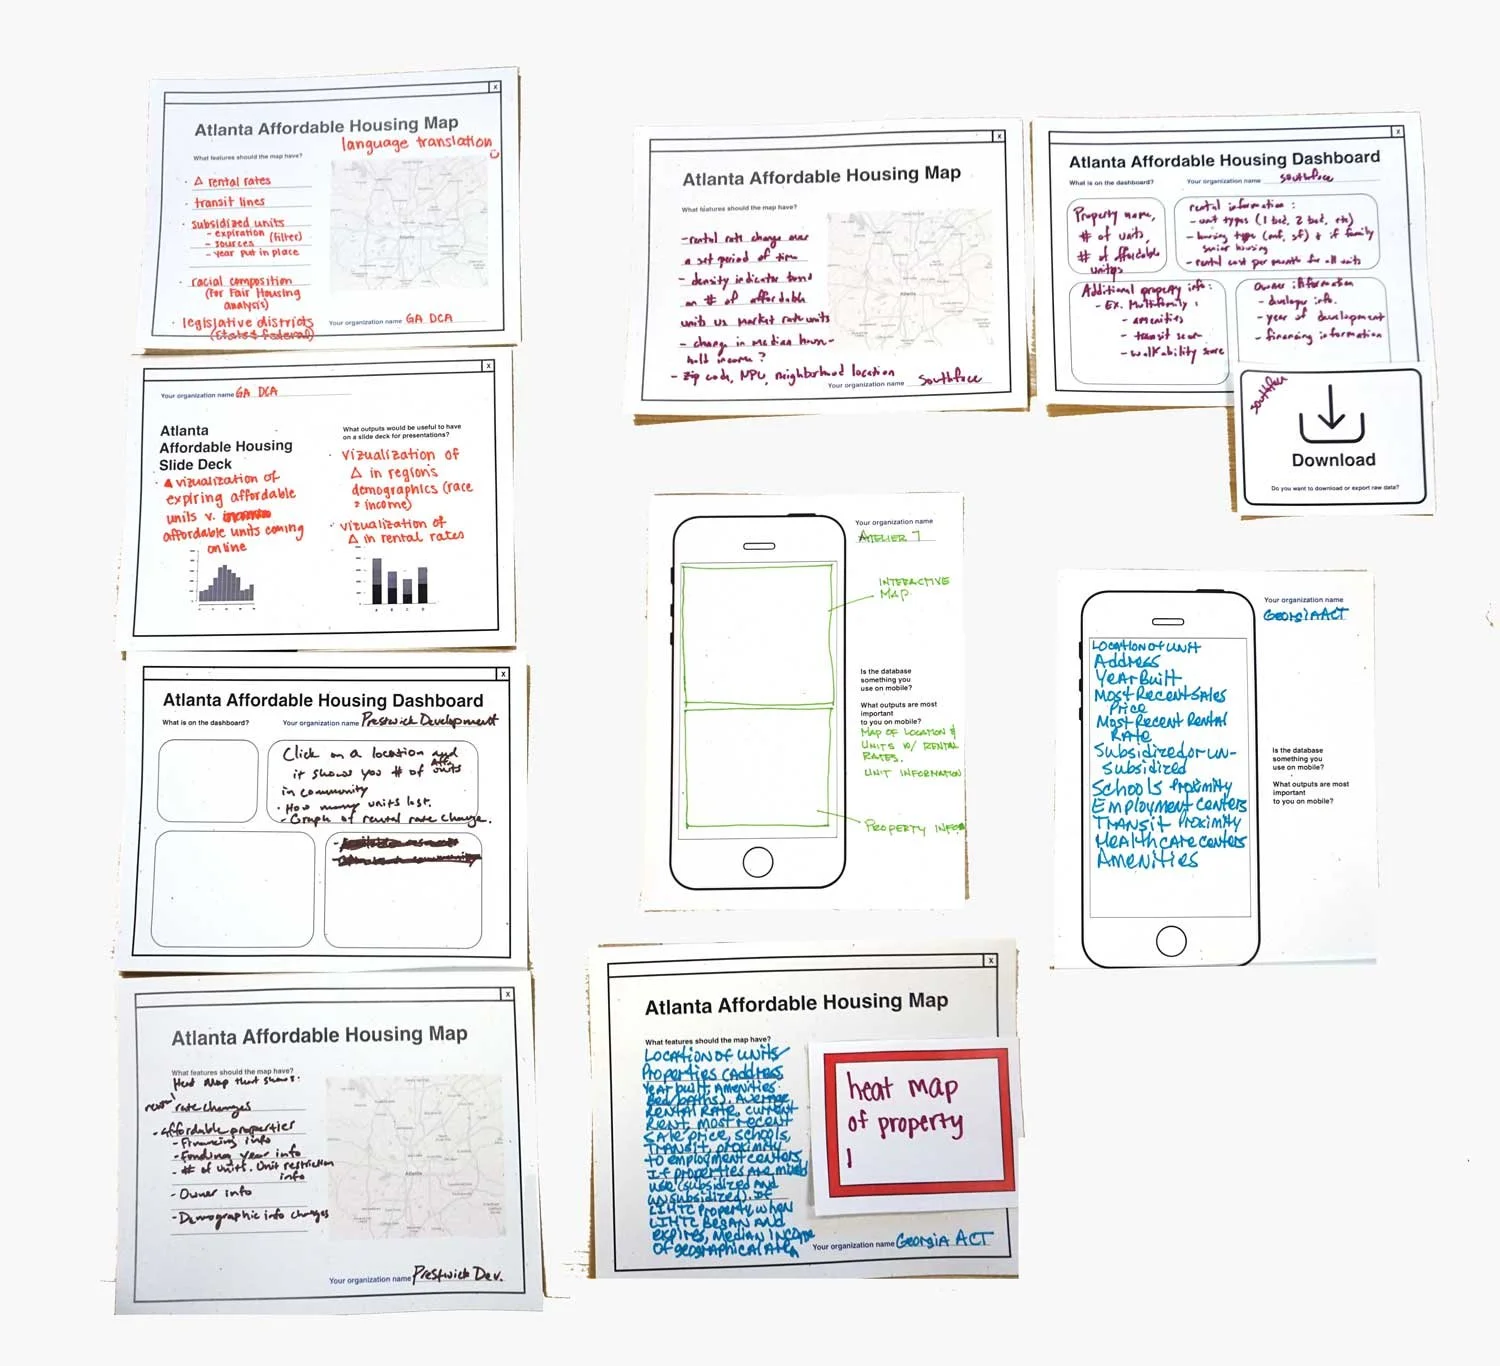 x
Atlanta Affordable Housing Map
language translation
What features should the map have?
· Δ rental rates
· transit lines
· subsidized units
- expiration (filter)
- sources
- year put in place
· racial composition
(For Fair Housing
analysis)
· legislative districts
(State & Federal)
Your organization name GA DCA
x
Your organization name GA DCA
Atlanta
Affordable Housing
Slide Deck
· vizualization of
expiring affordable
units v.
affordable units coming
online
What outputs would be useful to have
on a slide deck for presentations?
· vizualization of
Δ in region's
demographics (race
& income)
· vizualization of
Δ in rental rates
A B C D
x
Atlanta Affordable Housing Dashboard
What is on the dashboard?
Your organization name Prestwick Development
Click on a location and
it shows you # of Aff. units
in community
· How many units lost.
- Graph of rental rate change.
x
Atlanta Affordable Housing Map
What features should the map have?
Heat Map that shows:
rental rate changes
- affordable properties
- Financing info
- Funding year info
- # of units. Unit restriction
info
- Owner info
- Demographic info changes
Atlanta
Your organization name Prestwick Dev.
x
Atlanta Affordable Housing Map
What features should the map have?
- rental rate change over
a set period of time
- density indicator based
on # of affordable
units vs market rate units
- change in median house-
hold income?
- Zip code, NPU, neighborhood location
Atlanta
Your organization name Southface
x
Atlanta Affordable Housing Dashboard
What is on the dashboard?
Your organization name Southface
Property name,
# of units,
# of affordable
units
rental information:
- unit types (1 bed, 2 bed, etc)
- housing type (mf, sf) & if family
senior housing
- rental cost per month for all units
Additional property info:
- Ex. Multifamily:
- amenities
- transit score
- walkability score
Owner information
- developer info.
- year of development
- financing information
Southface
Download
Do you want to download or export raw data?
Your organization name
ATELIER 7
INTERACTIVE
MAP
Is the database
something you
use on mobile?
What outputs are most
important
to you on mobile?
MAP OF LOCATION &
UNITS W/ RENTAL
RATES.
UNIT INFORMATION
PROPERTY INFO
Your organization name
Georgia ACT
Location of unit
Address
Year Built
Most Recent Sales
Price
Most Recent Rental
Rate
Subsidized or un-
subsidized
Schools Proximity
Employment centers
Transit Proximity
Healthcare centers
Amenities
Is the database
something you
use on mobile?
What outputs are most
important
to you on mobile?
x
Atlanta Affordable Housing Map
What features should the map have?
Location of units
Properties (Address
Year built, Amenities
Bed/baths). Average
rental rate, current
rent, most recent
sale price, schools,
transit, proximity
to employment centers
If properties are mixed
use (subsidized and
unsubsidized). If
LIHTC property, when
LIHTC began and
expires, median income
of geographical area
heat map
of property
Your organization name Georgia ACT